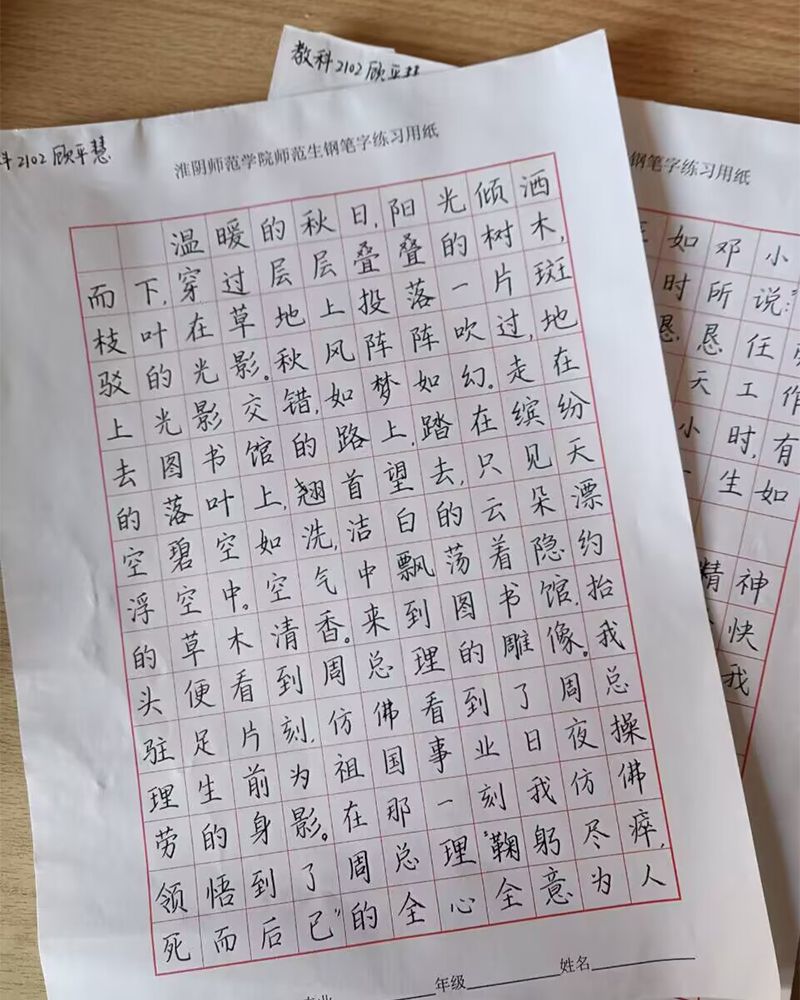 教科2102顾平慧
科2102顾平慧
淮阴师范学院师范生钢笔字练习用纸
温暖的秋日,阳光倾洒
而下,穿过层层叠叠的树木,
枝叶在草地上投落一片斑
驳的光影。秋风阵阵吹过,地
上光影交错,如梦如幻。走在
去图书馆的路上,踏在缤纷
的落叶上,翘首望去,只见天
空碧空如洗,洁白的云朵漂
浮空中。空气中飘荡着隐约
的草木清香。来到图书馆,抬
头便看到周总理的雕像。我
驻足片刻,仿佛看到了周总
理生前为祖国事业日夜操
劳的身影。在那一刻我仿佛
领悟到了周总理"鞠躬尽瘁,
死而后已"的全心全意为人
年级 姓名
钢笔字练习用纸
如邓小
时所说:
恳任
天工作
小时,有
生如
精神
快
我